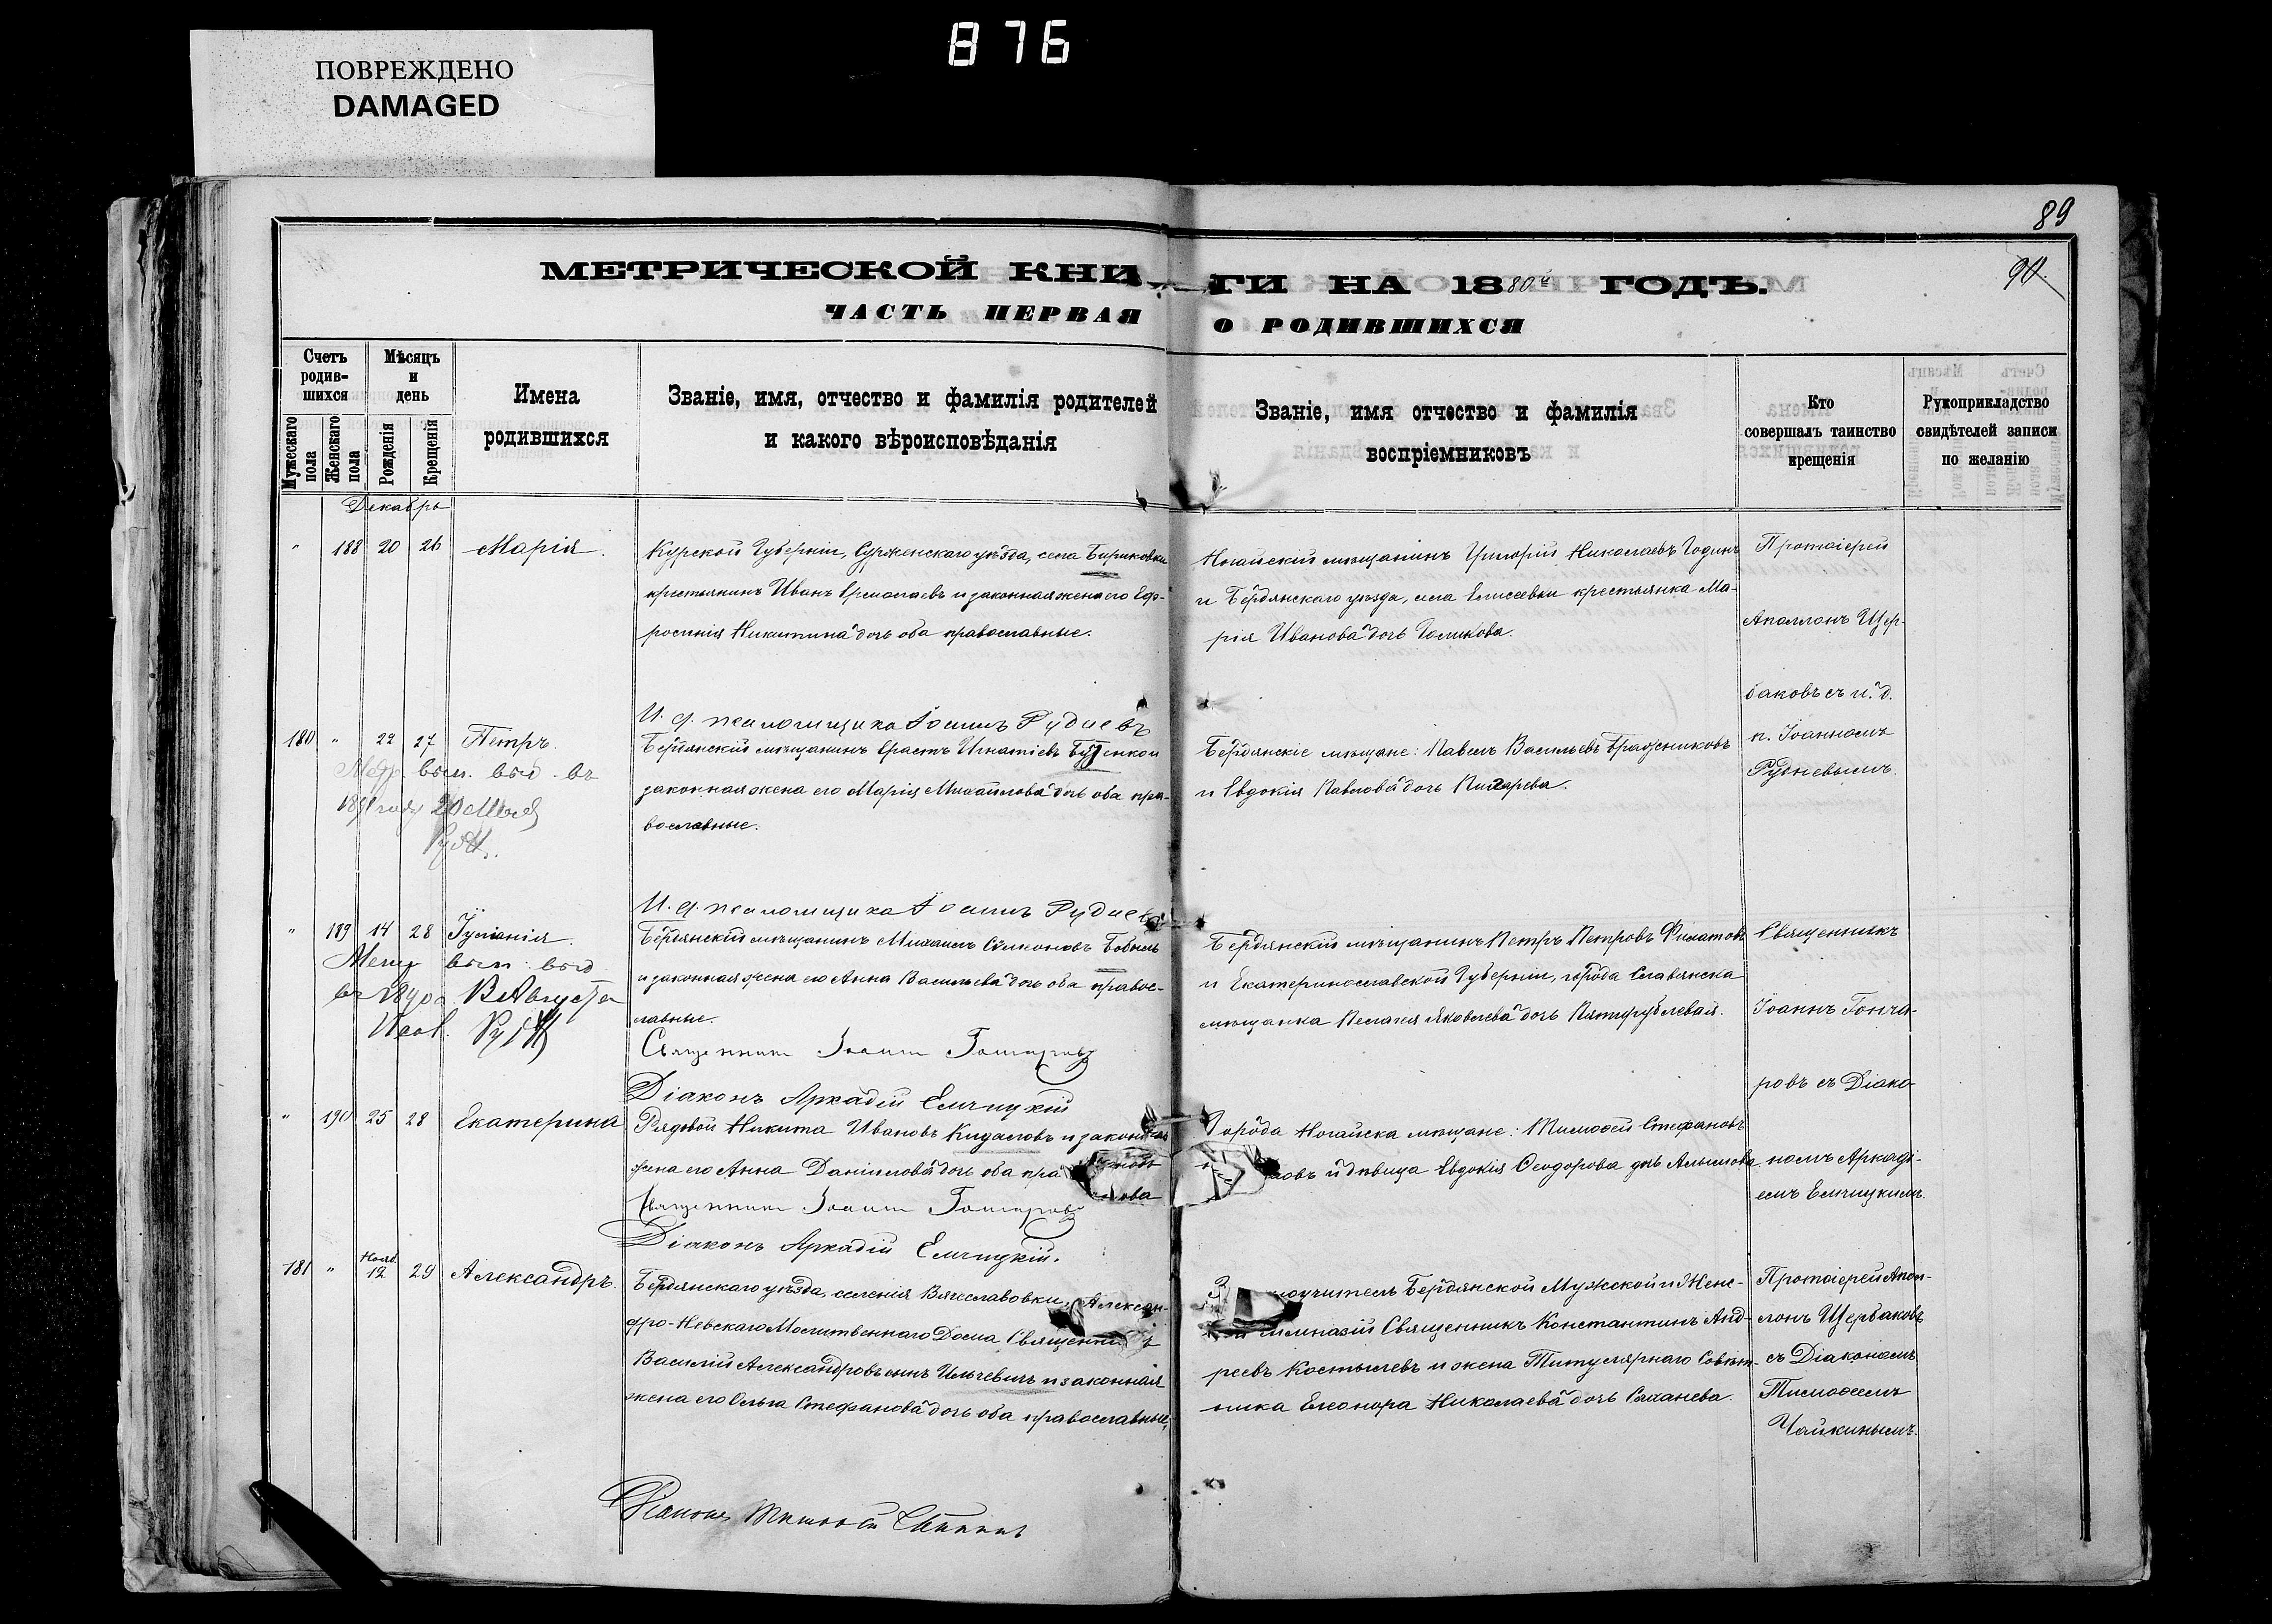 876
ПОВРЕЖДЕНО
DAMAGED
89
90.
МЕТРИЧЕСКОЙ КНИГИ НА 1880й ГОДЪ.
ЧАСТЬ ПЕРВАЯ О РОДИВШИХСЯ
Счетъ родив-шихся
Мужескаго пола
Женскаго пола
Мѣсяцъ и день
Рожденія
Крещенія
Имена родившихся
Званіе, имя, отчество и фамилія родителей
и какого вѣроисповѣданія
Званіе, имя отчество и фамилія
воспріемниковъ
Кто
совершалъ таинство
крещенія
Рукоприкладство
свидѣтелей записи
по желанію
Декабрь
" 188 20 26 Марія.
Курской Губерніи, Суржанскаго уѣзда, села
крестьянинъ Иванъ Ермолаевъ и законная жена его Евф-
росинія Никитина дочь оба православные.
Ногайскій мѣщанинъ Григорій Николаевъ Годинъ
и Бердянскаго уѣзда, села Елисеевки крестьянка Ма-
рія Иванова дочь Голикова.
Протоіерей
Аполлонъ Щер-
баковъ съ и. д.
п. Іоанномъ
Рудневымъ.
И. д. псаломщика Іоаннъ Рудневъ
180 " 22 27 Петръ.
Бердянскій мѣщанинъ Ерастъ Игнатіевъ
законная жена его Марія Михайлова дочь оба пра-
вославные.
Бердянскіе мѣщане: Павелъ Васильевъ Бражниковъ
и Евдокія Павлова дочь Писарева.
Метр. вып. выд. въ
И. д. псаломщика Іоаннъ Рудневъ
" 189 14 28 Іуліанія.
Бердянскій мѣщанинъ Михаилъ Симоновъ Бобыль
и законная жена его Анна Васильева дочь оба правос-
лавные.
Бердянскій мѣщанинъ Петръ Петровъ Филатовъ
и Екатеринославской Губерніи, города Славянска
мѣщанка Пелагія Яковлева дочь Пятирублевая.
Священникъ
Іоаннъ Гонча-
ровъ съ Діако-
номъ Аркаді-
емъ Елчицкимъ.
вып. выд
Священникъ Іоаннъ Гончаровъ
Діаконъ Аркадій Елчицкій
" 190 25 28 Екатерина
Рядовой Никита Ивановъ Кидаловъ и законная
жена его Анна Даніилова дочь оба пра
Города Ногайска мѣщане: Тимофей Стефановъ
овъ и дѣвица Евдокія Феодорова дочь
Священникъ Іоаннъ Гончаровъ
Діаконъ Аркадій Елчицкій.
181 " Нояб. 12 29 Александръ.
Бердянскаго уѣзда, селенія Вячеславовки, Алексан-
дро-Невскаго Молитвеннаго Дома Священникъ
Василій Александровъ сынъ Ильчевичъ и законная
жена его Ольга Стефанова дочь оба православные,
оучитель Бердянской Мужской и Женс-
гимназій Священникъ Константинъ Анд-
реевъ Костылевъ и жена Титулярнаго Совѣт-
ника Елеонора Николаева дочь
Протоіерей Апол-
лонъ Щербаковъ
съ Діакономъ
Тимофеемъ
Чайкинымъ.
Діаконъ Тимофей Чайкинъ